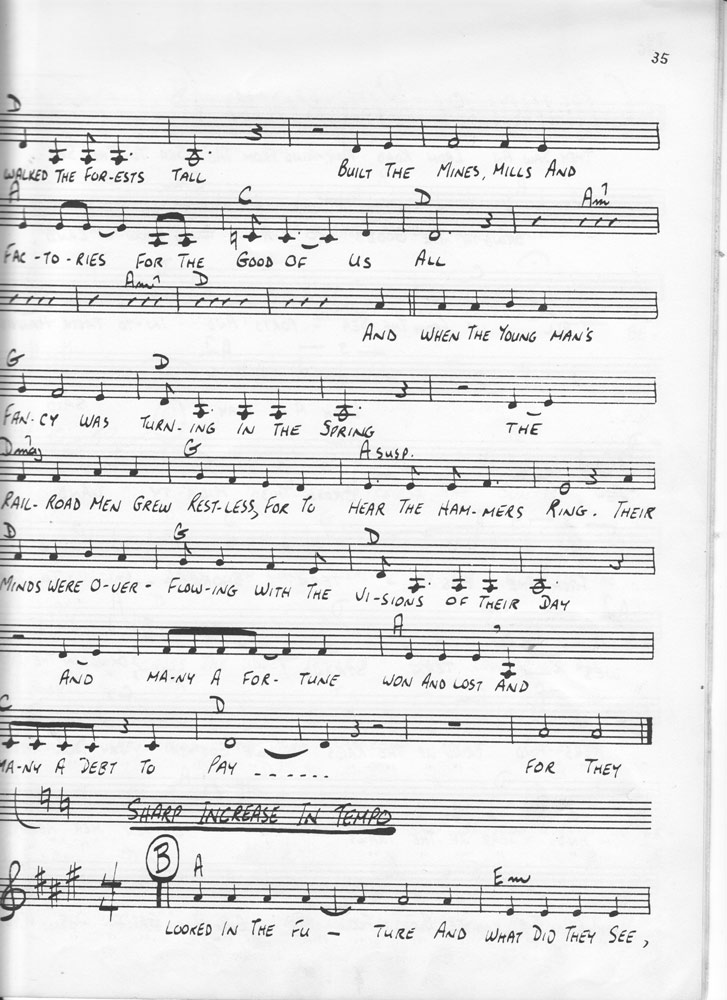 35
D
WALKED THE FOR-ESTS TALL BUILT THE MINES, MILLS AND
A C D Am7
FAC-TO-RIES FOR THE GOOD OF US ALL
Am7 D
AND WHEN THE YOUNG MAN'S
G D
FAN-CY WAS TURN-ING IN THE SPRING THE
Dmaj7 G A SUSP.
RAIL-ROAD MEN GREW REST-LESS, FOR TO HEAR THE HAM-MERS RING. THEIR
D G D
MINDS WERE O-VER-FLOW-ING WITH THE VI-SIONS OF THEIR DAY
A
AND MA-NY A FOR-TUNE WON AND LOST AND
C D
MA-NY A DEBT TO PAY ------ FOR THEY
SHARP INCREASE IN TEMPO
B A Em
LOOKED IN THE FU - TURE AND WHAT DID THEY SEE,